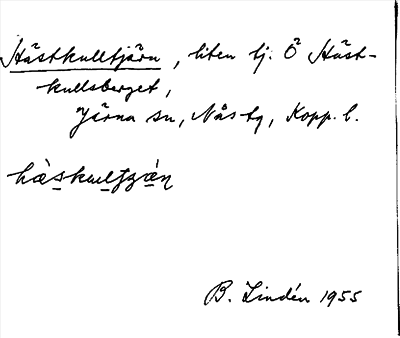 Hästkulltjärn, liten tj. Ö Häst-
kullsberget,
Järna sn, Nås tg, Kopp. l.
hàskultjæ̀ṇ
B. Lindén 1955